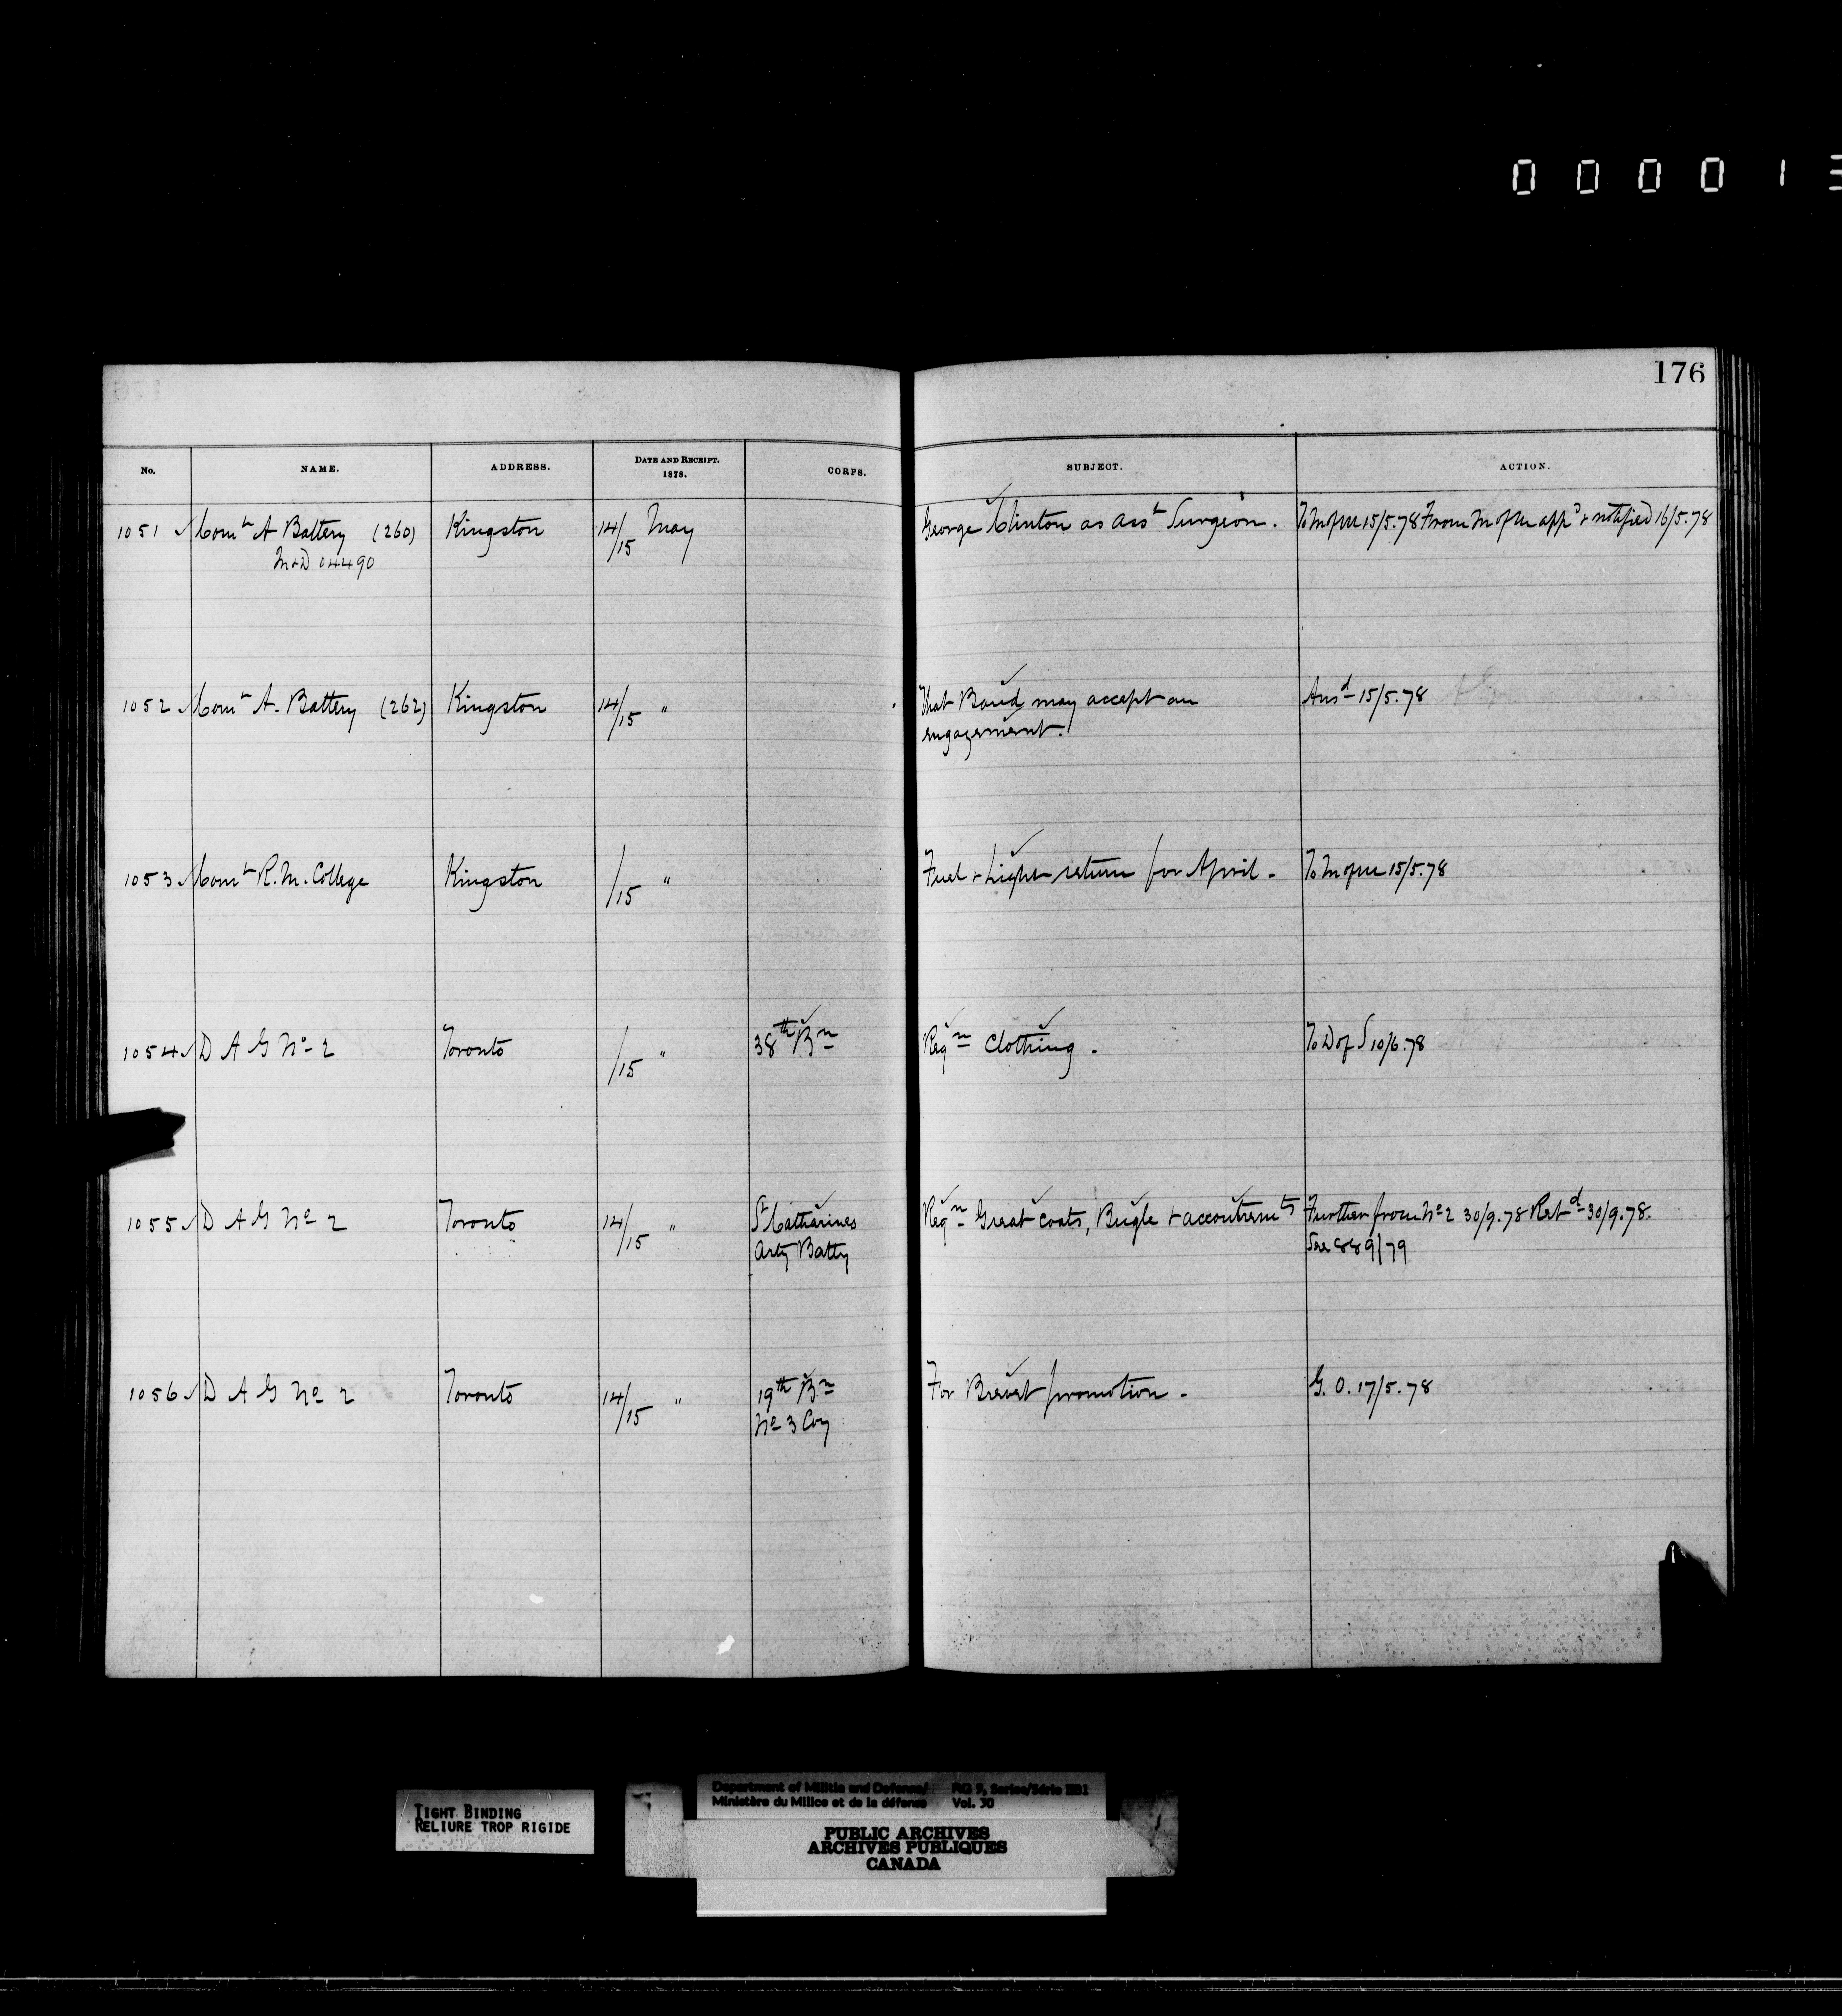 0 0 0 0 1 3
176
No. NAME. ADDRESS. DATE AND RECEIPT. 1878. CORPS. SUBJECT. ACTION.
1051 Comt A Battery (260) Kingston 14/15 May George Clinton as Asst Surgeon. To M of M 15/5.78 From M of M appd & notified 16/5.78
M&D 04490
1052 Comt A. Battery (262) Kingston 14/15 " That Band may accept an Ansd 15/5.78
engagement.
1053 Comt R. M. College Kingston /15 " Fuel & Light return for April - To M of M 15/5.78
1054 D A G No 2 Toronto /15 " 38th Bn Reqn Clothing - To D of S 10/6.78
1055 D A G No 2 Toronto 14/15 " St Catharines Reqn Great Coats, Bugle & accoutremts Further from No 2 30/9.78 Retd 30/9.78.
Arty Batty See 889/79
1056 D A G No 2 Toronto 14/15 " 19th Bn For Brevet promotion - G. O. 17/5.78
No 3 Coy
Department of Militia and Defence/ RG 9, Series/Série IIB1
Ministère du Milice et de la défense Vol. 30
TIGHT BINDING
RELIURE TROP RIGIDE
PUBLIC ARCHIVES
ARCHIVES PUBLIQUES
CANADA